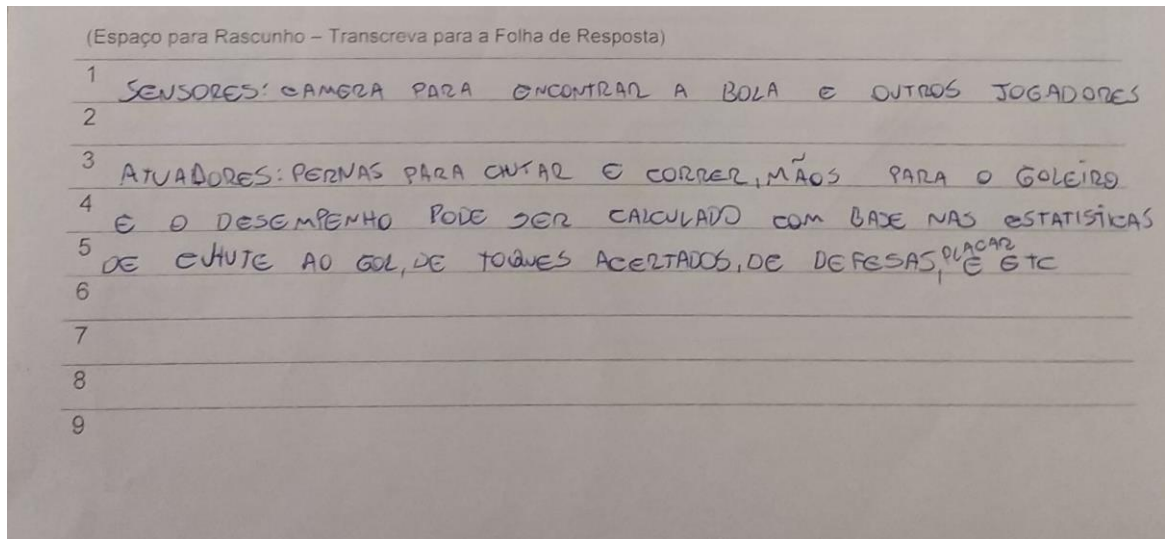 (Espaço para Rascunho – Transcreva para a Folha de Resposta)
1 SENSORES: CAMERA PARA ENCONTRAR A BOLA E OUTROS JOGADORES
2
3 ATUADORES: PERNAS PARA CHUTAR E CORRER, MÃOS PARA O GOLEIRO
4 E O DESEMPENHO PODE SER CALCULADO COM BASE NAS ESTATISÍCAS
5 DE CHUTE AO GOL, DE TOQUES ACERTADOS, DE DEFESAS, PLACAR E ETC
6
7
8
9